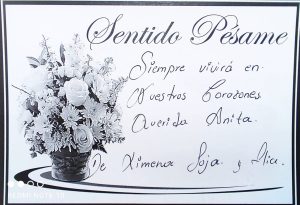 Sentido Pésame
Siempre vivirá en
Nuestros Corazones
Querida Anita.
De Ximena Soja. y Mia.